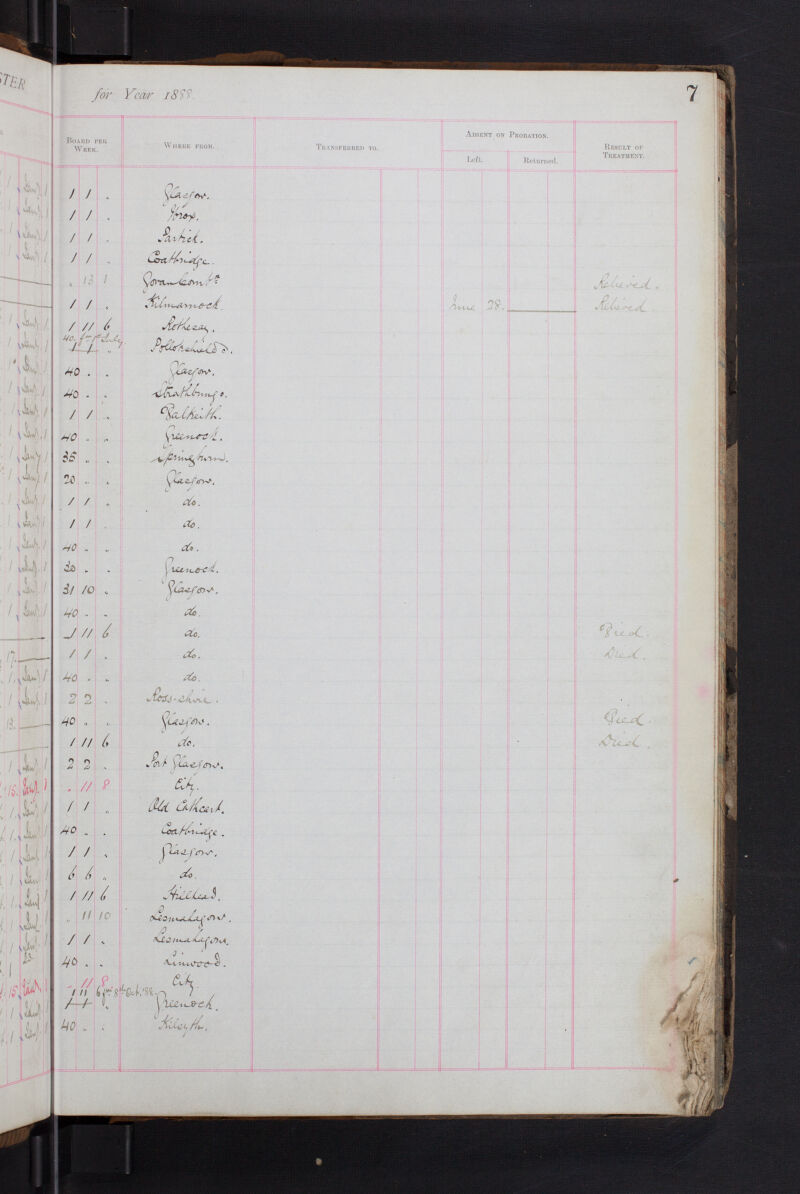 for Year 1888.
7
BOARD PER WEEK. WHERE FROM. TRANSFERRED TO. ABSENT ON PROBATION. RESULT OF TREATMENT.
Left. Returned.
1 1 . Glasgow.
1 1 . Ibrox.
1 1 . Partick.
1 1 . Coatbridge.
. 13 1 Govan Relieved.
1 1 . Kilmarnock June 28. Relieved
1 11 6 Rothesay.
40. July
1 1 . Pollokshields.
40 . . Glasgow.
40 . . Strathbungo.
1 1 . Dalkeith.
40 . . Greenock.
35 . . Springburn.
20 . . Glasgow.
1 1 . do.
1 1 . do.
40 . . do.
30 . . Greenock.
31 10 . Glasgow.
40 . . do.
1 11 6 do. Died.
1 1 . do. Died.
40 . . do.
2 2 . Ross-shire.
40 . . Glasgow. Died.
1 11 6 do. Died.
2 2 . Port Glasgow.
. 11 8 City.
1 1 . Old Cathcart.
40 . . Coatbridge.
1 1 . Glasgow.
6 6 . do.
1 11 6 Hillhead.
. 11 10 Lesmahagow.
1 1 . Lesmahagow.
40 . . Linwood.
. 11 8 City.
1 11 6 8th Oct. '88.
1 1 . Greenock.
40 . . Kilsyth.